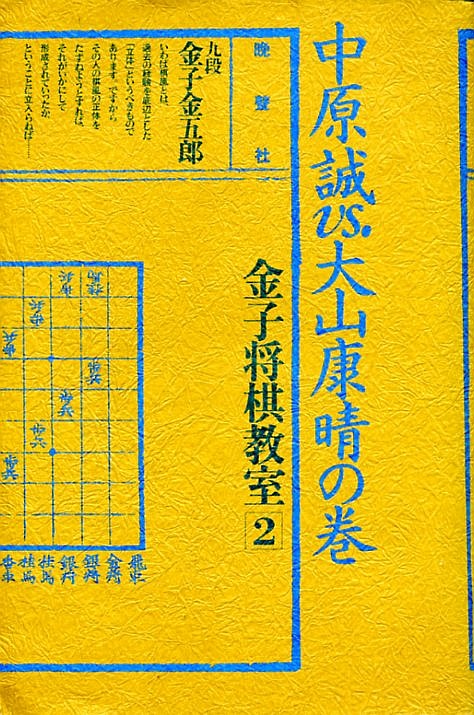 中原誠vs.大山康晴の巻
金子将棋教室 2
晩聲社
九段
金子金五郎
いわば棋風とは、
過去の経験を底辺とした
「立体」というべきもので
あります。ですから
その人の棋風の正体を
たずねようとすれば、
それがいかにして
形成されていったか
ということに立入らねば……
歩兵
歩兵
飛車
金将
銀将
銀将
桂馬
桂馬
香車